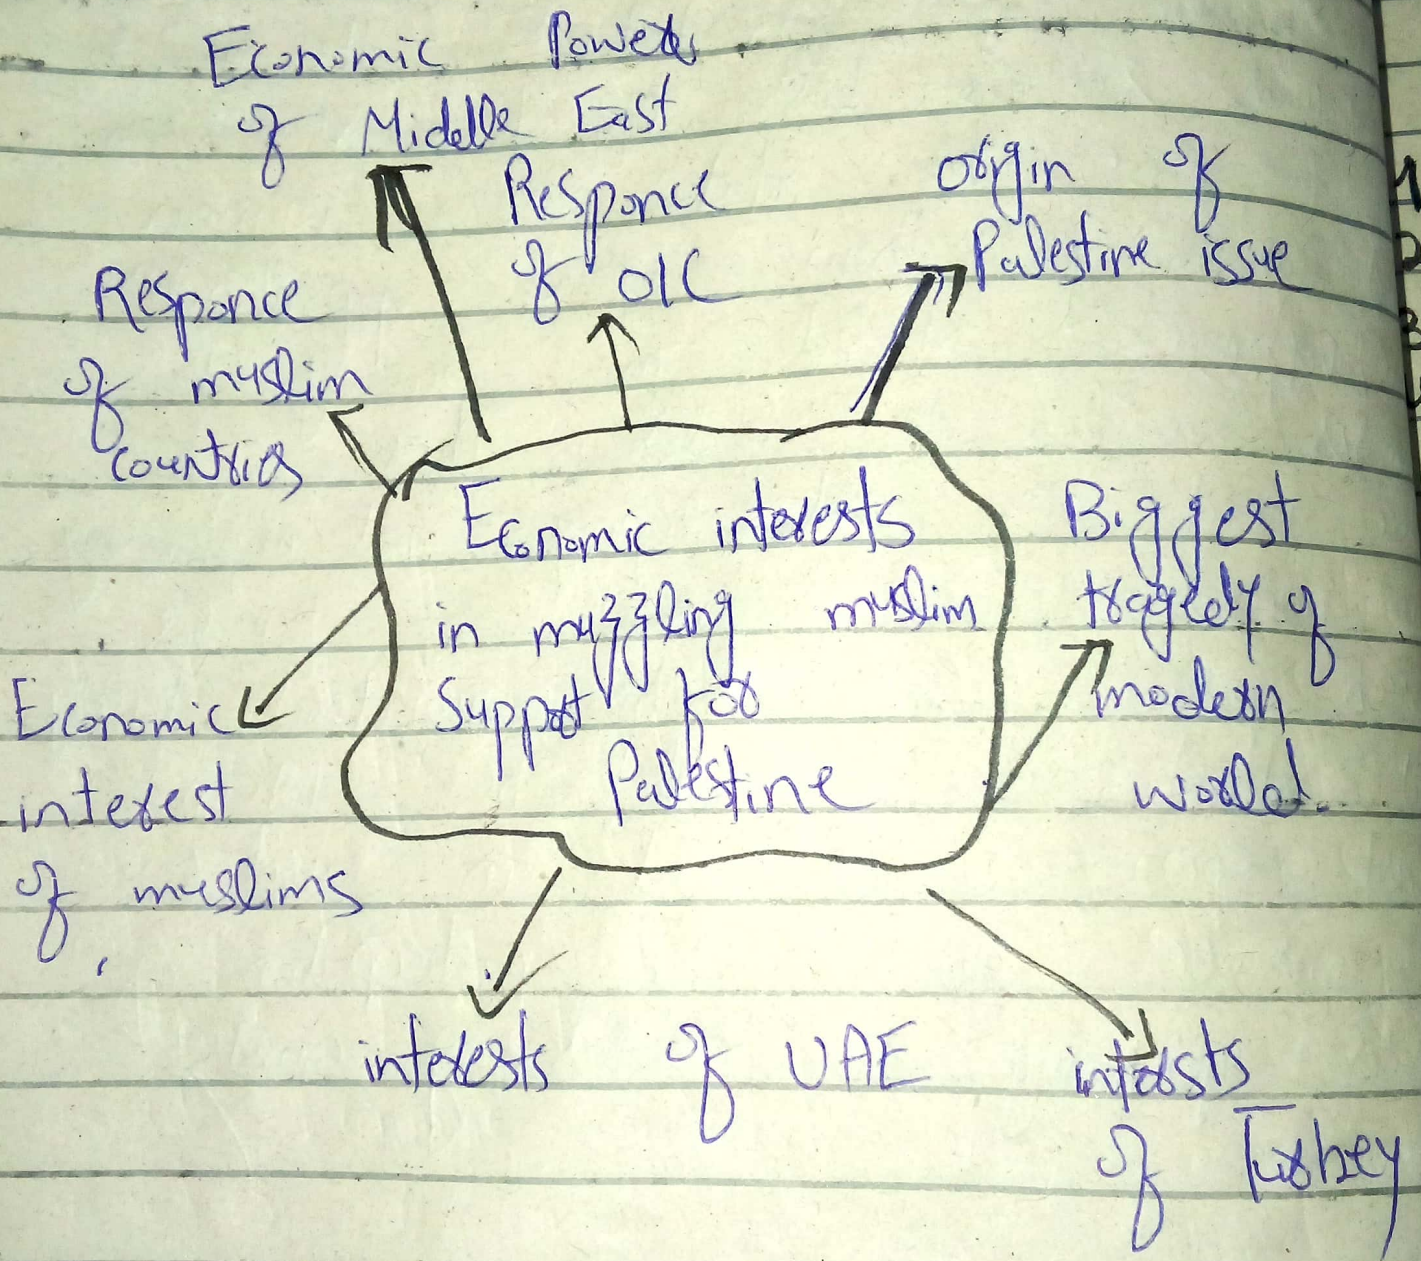 Economic Powers
of Middle East
Responce
of OIC
origin of
Palestine issue
Responce
of muslim
countries
Economic interests
in muzzling muslim
Support for
Palestine
Biggest
tragedy of
modern
world.
Economic
interest
of muslims
interests of UAE
intersts
of Turkey